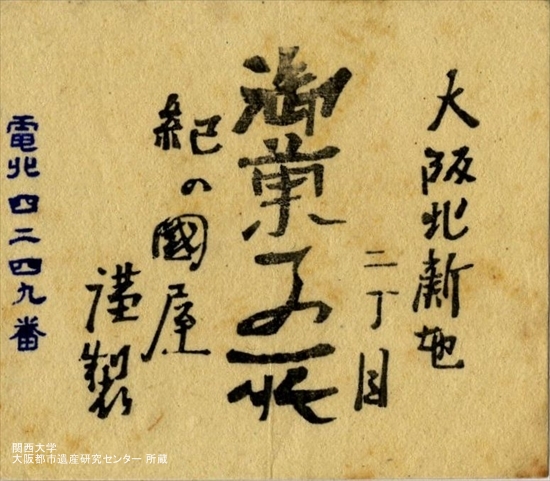 大阪北新地
二丁目
御菓子所
紀の國屋
謹製
電北四二四九番
関西大学
大阪都市遺産研究センター 所蔵